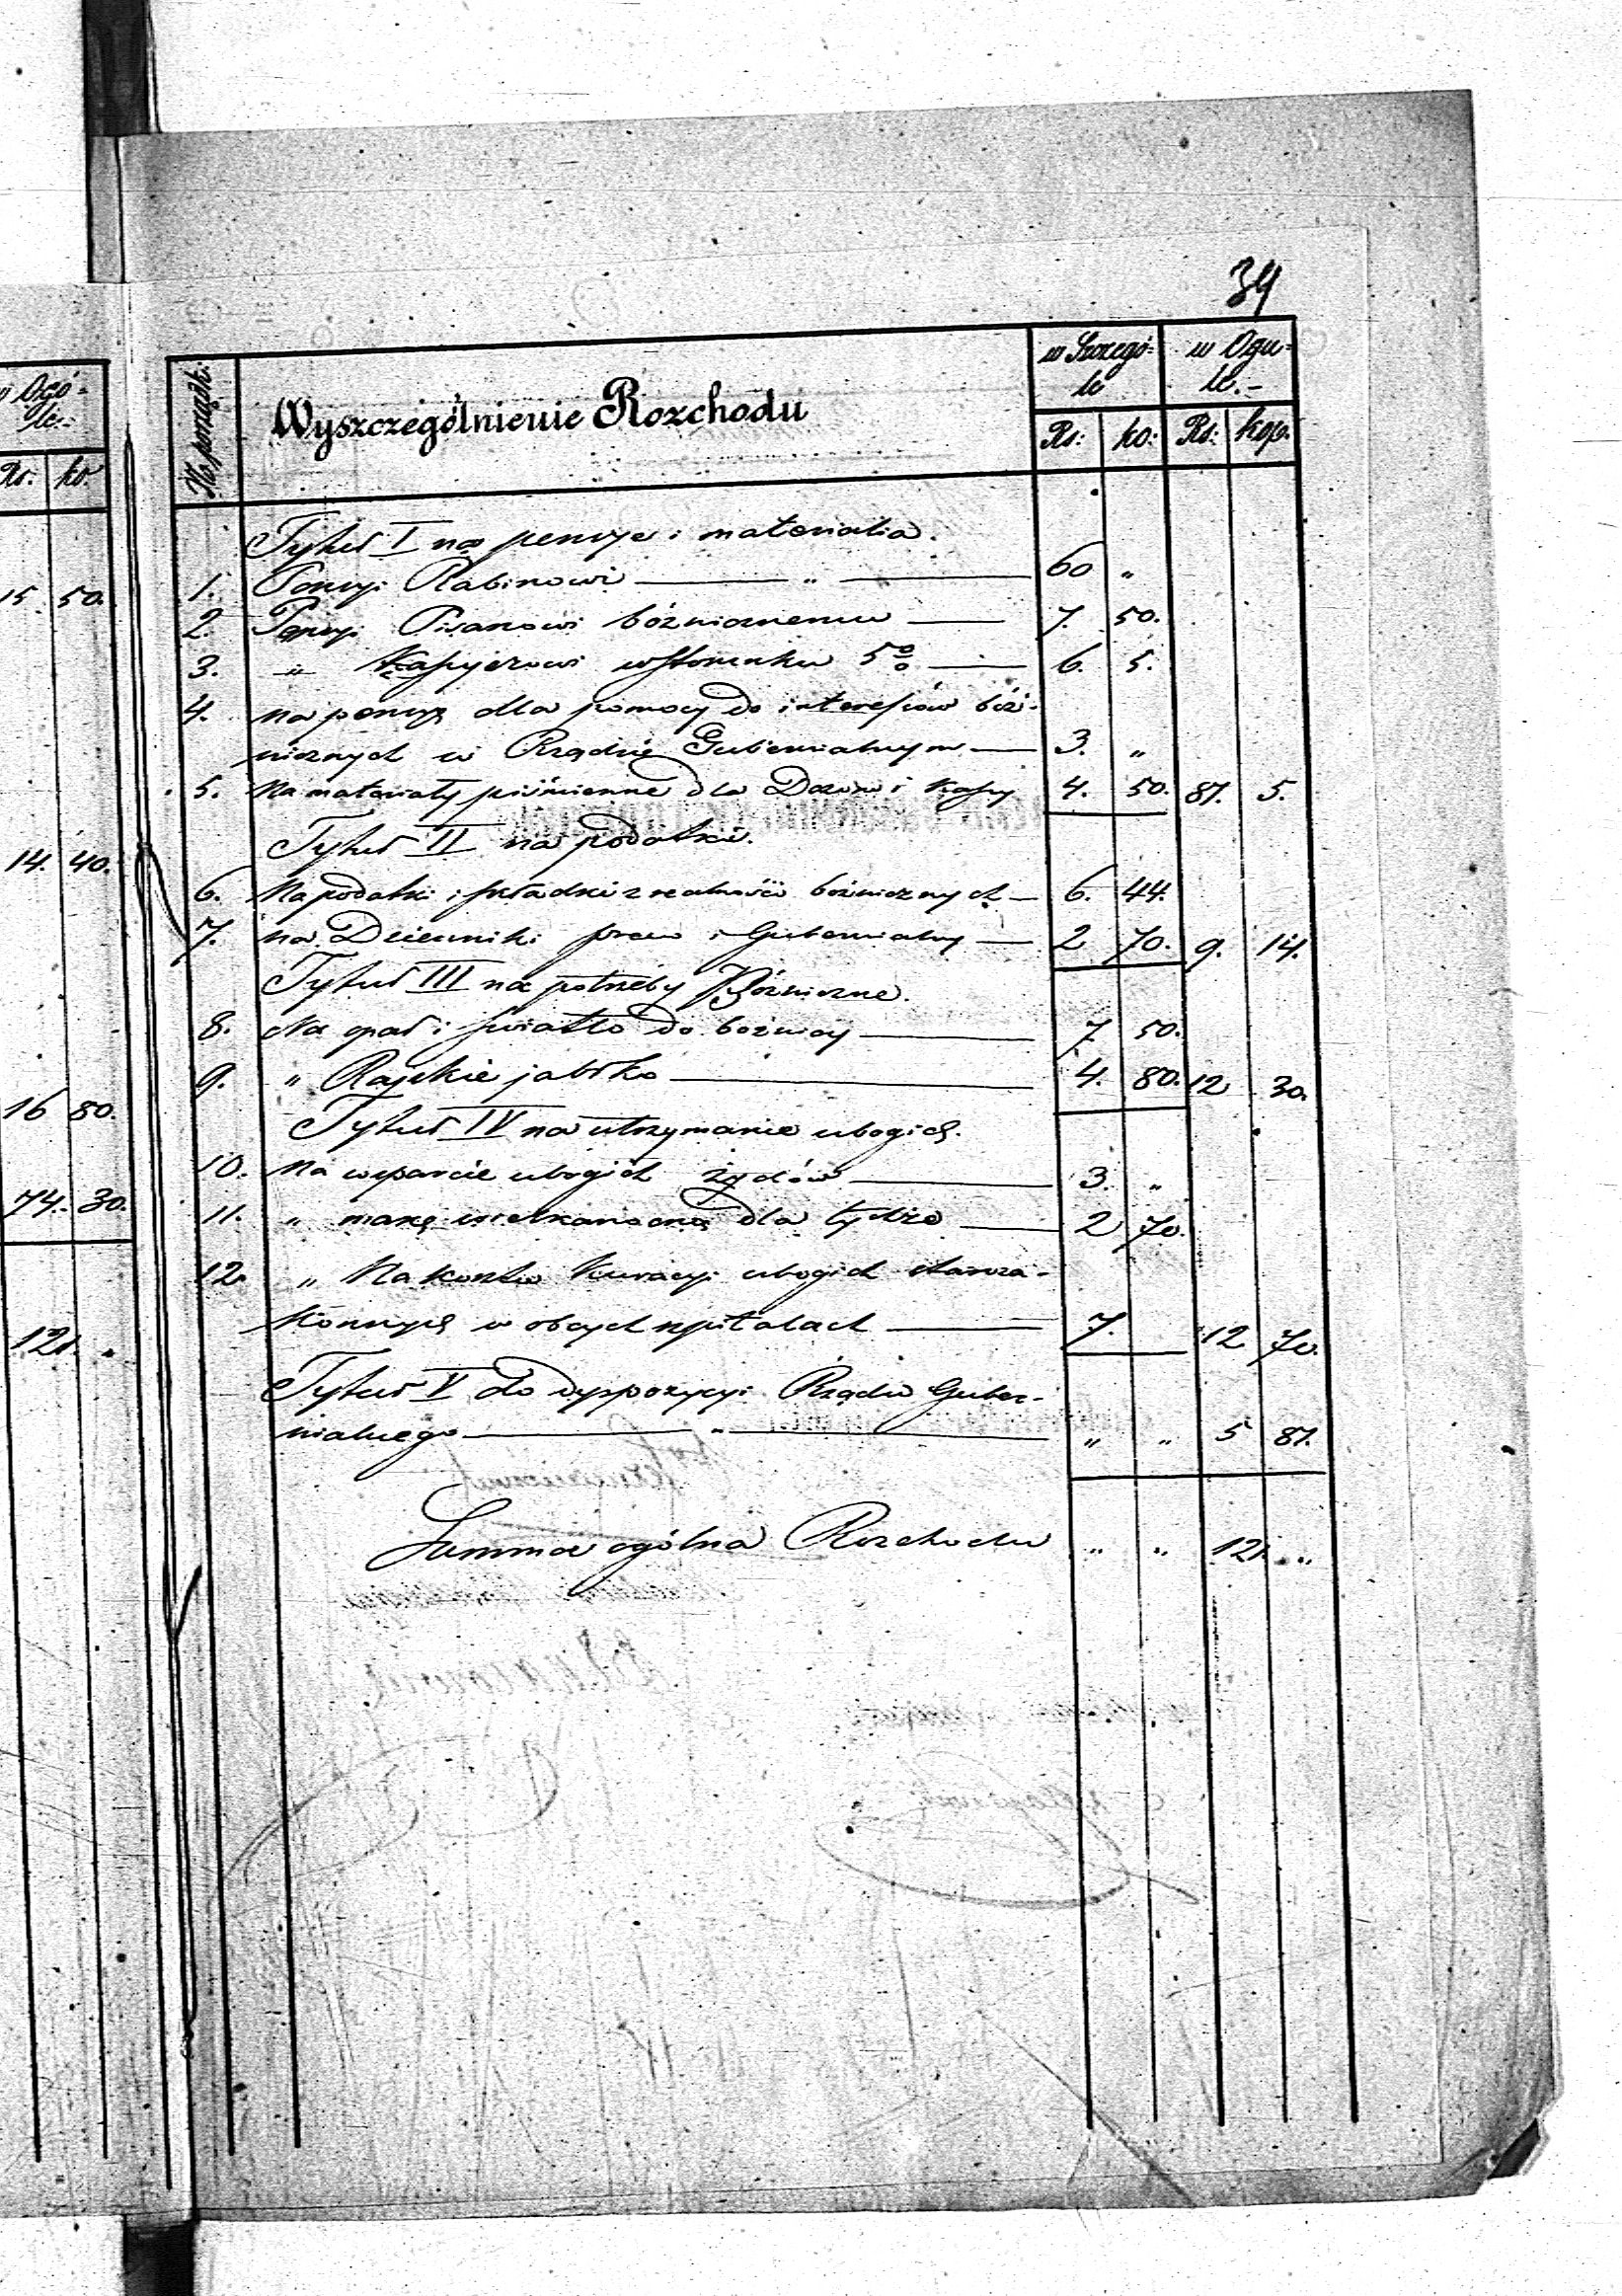 34
w Ogó=
le.-
Rs. ko.
15 50.
14. 40.
16 80.
74. 30.
121. "
No porządk: Wyszczególnienie Rozchodu w Szczegó=
le w Ogu=
le.-
Rs: ko: Rs: kop.
Tytuł I na pensye i materialia.
1. Pensyi Rabinowi — " — 60 "
2. Pensyi Pisarzowi bóżnicznemu — 7. 50.
3. " Kassyerowi w stosunku 5% — 6. 5.
4. na pensyę dla pomocy do interessów bóż-
nicznych w Rządzie Gubernialnym — 3. "
5. Na materiały piśmienne dla Dozoru i Kassy 4. 50. 81. 5.
Tytuł II na podatki.
6. Na podatki i składki z realności bożnicznych — 6. 44.
7. na Dzienniki praw i Gubernialny — 2 70. 9. 14.
Tytuł III na potrzeby Bóżniczne.
8. Na opał i światło do bożnicy — 7 50.
9. " Rajskie jabłko — 4. 80. 12 30.
Tytuł IV na utrzymanie ubogich.
10. Na wsparcie ubogich żydów — 3. "
11. " mąkę wielkanocną dla tychże — 2 70.
12. " Na koszta Kuracyi ubogich staroza-
konnych w obcych szpitalach — 7. 12 70.
Tytuł V do dyspozycyi Rządu Guber-
nialnego — " — " " 5 81.
Summa ogólna Rozchodu " " 121. "